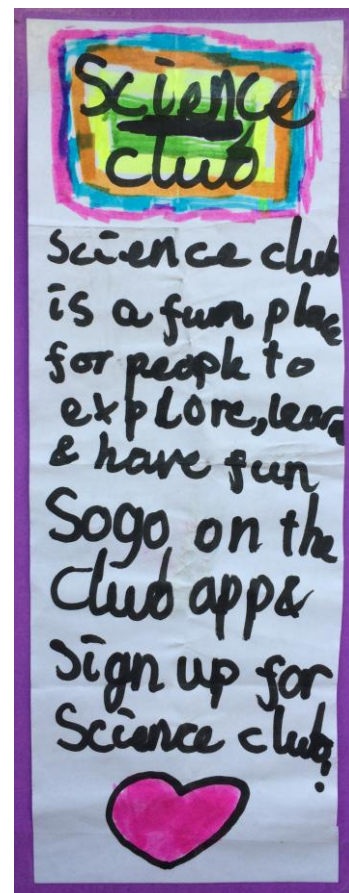 Science
club
Science club
is a fun place
for people to
explore, learn
& have fun
Sogo on the
Club app&
Sign up for
Science club!